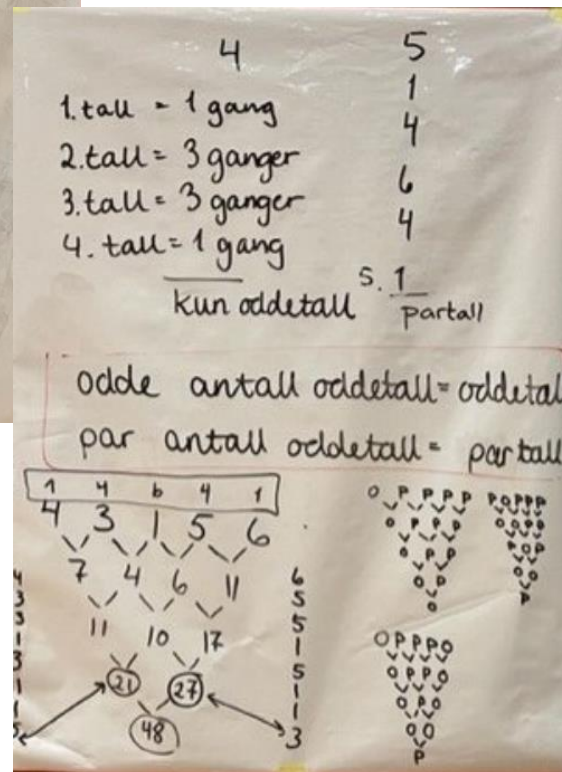 4 5
1. tall = 1 gang 1
2. tall = 3 ganger 4
3. tall = 3 ganger 6
4. tall = 1 gang 4
kun oddetall 5. 1
partall
odde antall oddetall = oddetal
par antall oddetall = partall
1 4 6 4 1
4 3 1 5 6
7 4 6 11
11 10 17
21 27
48
4
3
3
1
3
1
1
5
6
5
5
1
5
1
1
3
O P P P P
O P P P
O P P
O P
O
P O P P P
O P P P O
O P P O
O P O
O O
P